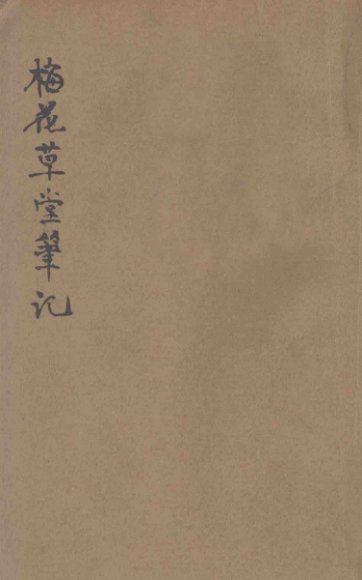 梅花草堂筆记